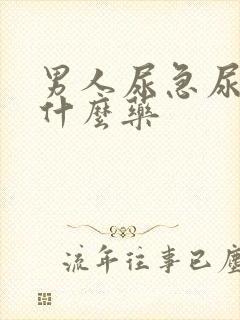 男人尿急尿
什麼藥
流年往事已塵